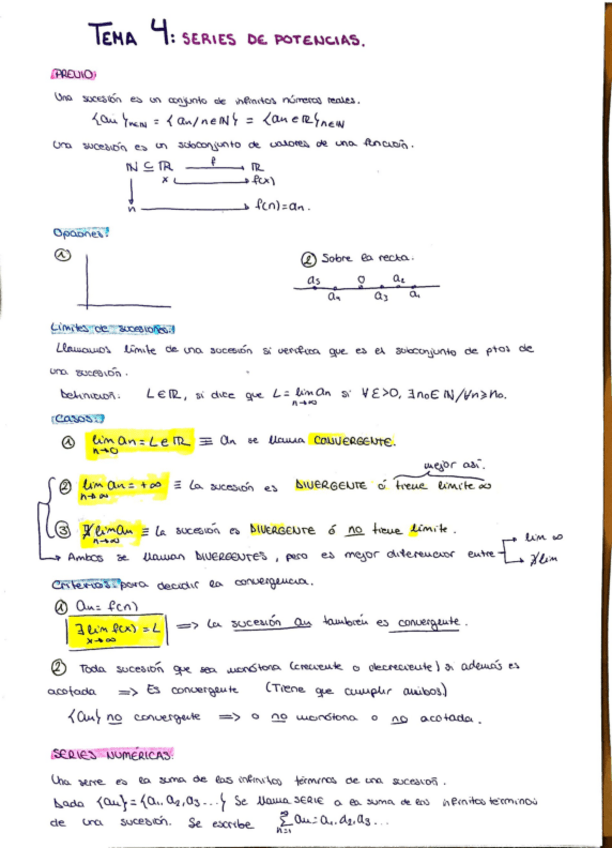 TEMA 4: SERIES DE POTENCIAS.
PREVIO:
Una sucesión es un conjunto de infinitos números reales.
{an}n∈ℕ = {an/n∈ℕ} = {an∈ℝ}n∈ℕ
Una sucesión es un subconjunto de valores de una función.
ℕ ⊆ ℝ f ℝ
x f(x)
n f(n)=an.
Opciones:
① ② Sobre la recta.
a5 0 a2
a4 a3 a1
Límites de sucesiones:
Llamamos límite de una sucesión si verifica que es el subconjunto de ptos de
una sucesión.
Definición: L∈ℝ, si dice que L = lim an si ∀ε>0, ∃n0∈ℕ/∀n≥n0.
n→∞
Casos:
① lim an = L∈ℝ ≡ an se llama CONVERGENTE.
n→0
mejor así.
② lim an = +∞ ≡ La sucesión es DIVERGENTE ó tiene límite ∞
n→∞
③ ∄ lim an ≡ La sucesión es DIVERGENTE ó no tiene límite.
n→∞
→ Ambos se llaman DIVERGENTES, pero es mejor diferenciar entre → lim ∞
→ ∄ lim
Criterios: para decidir la convergencia.
① an = f(n)
∃ lim f(x) = L ⟹ La sucesión an también es convergente.
x→∞
② Toda sucesión que sea monótona (creciente o decreciente) si además es
acotada ⟹ Es convergente (Tiene que cumplir ambos)
{an} no convergente ⟹ o no monótona o no acotada.
SERIES NUMÉRICAS:
Una serie es la suma de las infinitos términos de una sucesión.
Dada {an} = {a1, a2, a3...} Se llama SERIE a la suma de los infinitos términos
de una sucesión. Se escribe ∞∑n=1 an = a1, a2, a3...